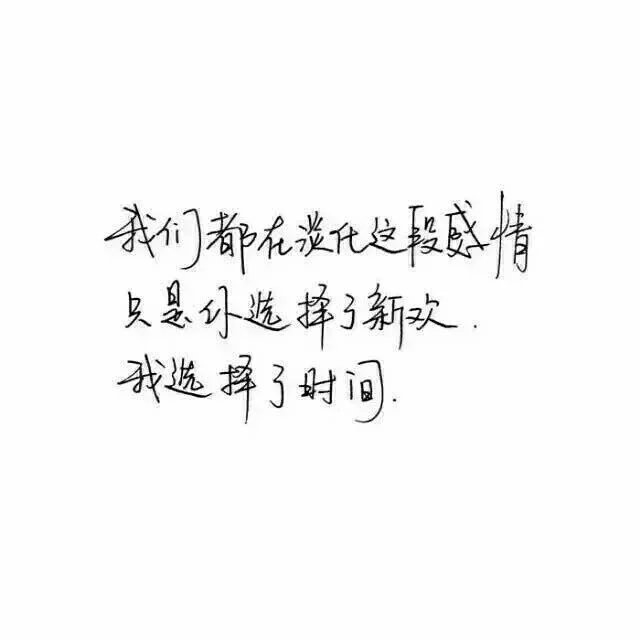 我们都在淡化这段感情
只是你选择了新欢.
我选择了时间.